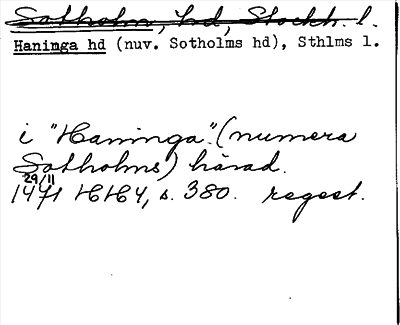 Sotholm, hd, Stockh. l.
Haninga hd (nuv. Sotholms hd), Sthlms l.
i "Haninga". (numera
Sotholms) härad.
29/11
1471 HH4, s. 380. regest.